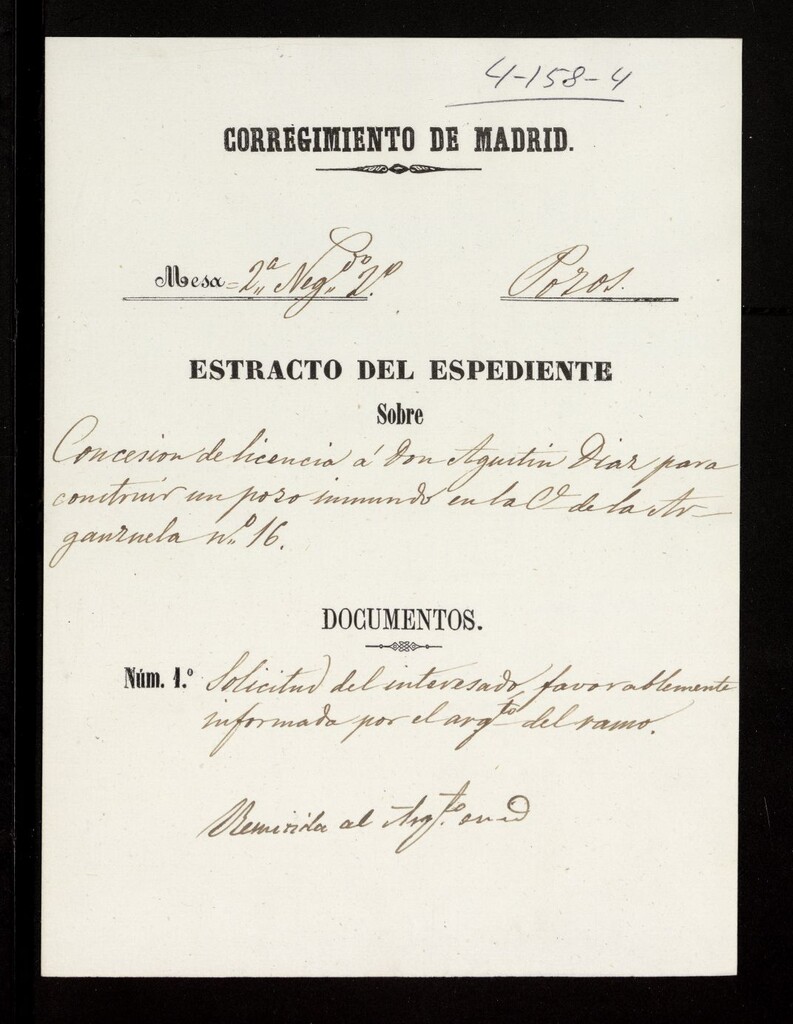 4-158-4
CORREGIMIENTO DE MADRID.
Mesa = 2ª Neg.do 2º Pozos.
ESTRACTO DEL ESPEDIENTE
Sobre
Concesion de licencia á Don Agustin Diaz para
construir un pozo inmundo en la C.e de la Ar-
ganzuela n.º 16.
DOCUMENTOS.
Núm. 1.º Solicitud del interesado, favorablemente
informada por el arq.to del ramo.
al Arq.to